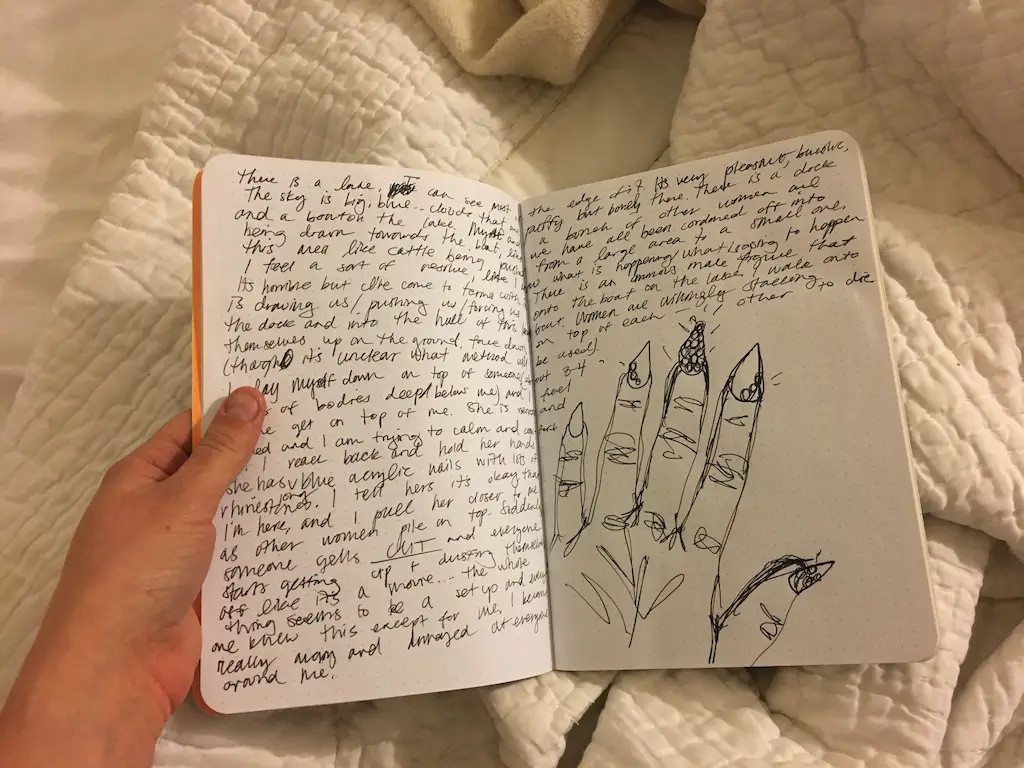 There is a lake. I can see most the edge of it. Its very pleasant, bucolic,
The sky is big, blue... clouds that puffy but barely there. There is a dock
and a boat on the lake. Myself and a bunch of other women are
being drawn towards the boat, we have all been condemned off into
this area like cattle being pushed from a large area to a small one,
I feel a sort of resolve, like I what is happening/what is going to happen
Its horrible but I've come to terms with There is an ominous male figure that
is drawing us/pushing us/forcing us onto the boat on the lake. I walk onto
the dock and into the hull of this boat. Women are willingly stacking to die
themselves up on the ground, face down on top of each other
(though it's unclear what method will be used)
I lay myself down on top of someone 3-4
of bodies deep below me) and feel
get on top of me. She is and
and I am trying to calm and
I reach back and hold her hands
she has v blue acrylic nails with lots of
rhinestones. I tell hers its okay that
I'm here, and I pull her closer to me
as other women pile on top. Suddenly
someone yells CUT and everyone
starts getting up + dusting themselves
off like its a movie... the whole
thing seems to be a set up and every
one knew this except for me, I become
really angry and annoyed at everyone
around me.